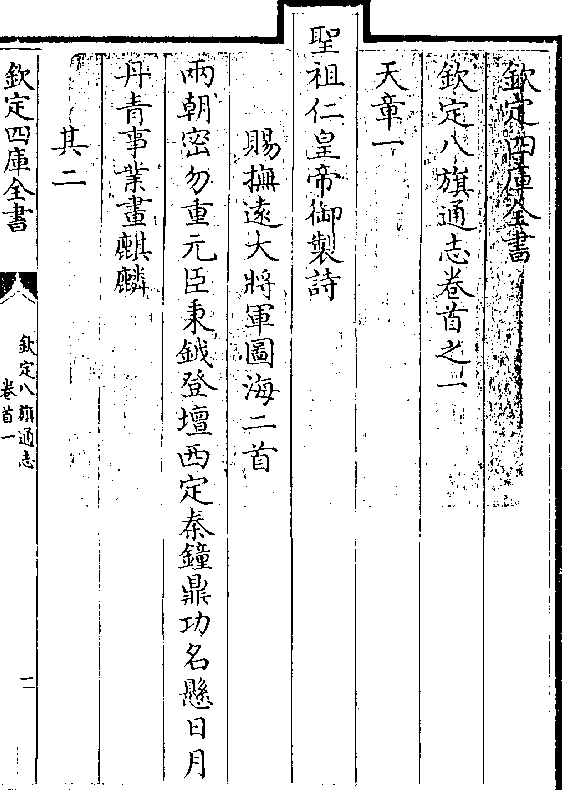 欽定四庫全書
欽定八旗通志卷首之一
天章一
聖祖仁皇帝御製詩
賜撫遠大將軍圖海二首
兩朝密勿重元臣秉鉞登壇西定秦鐘鼎功名懸日月
丹青事業畫麒麟
其二
欽定四庫全書
欽定八旗通志
卷首一
一